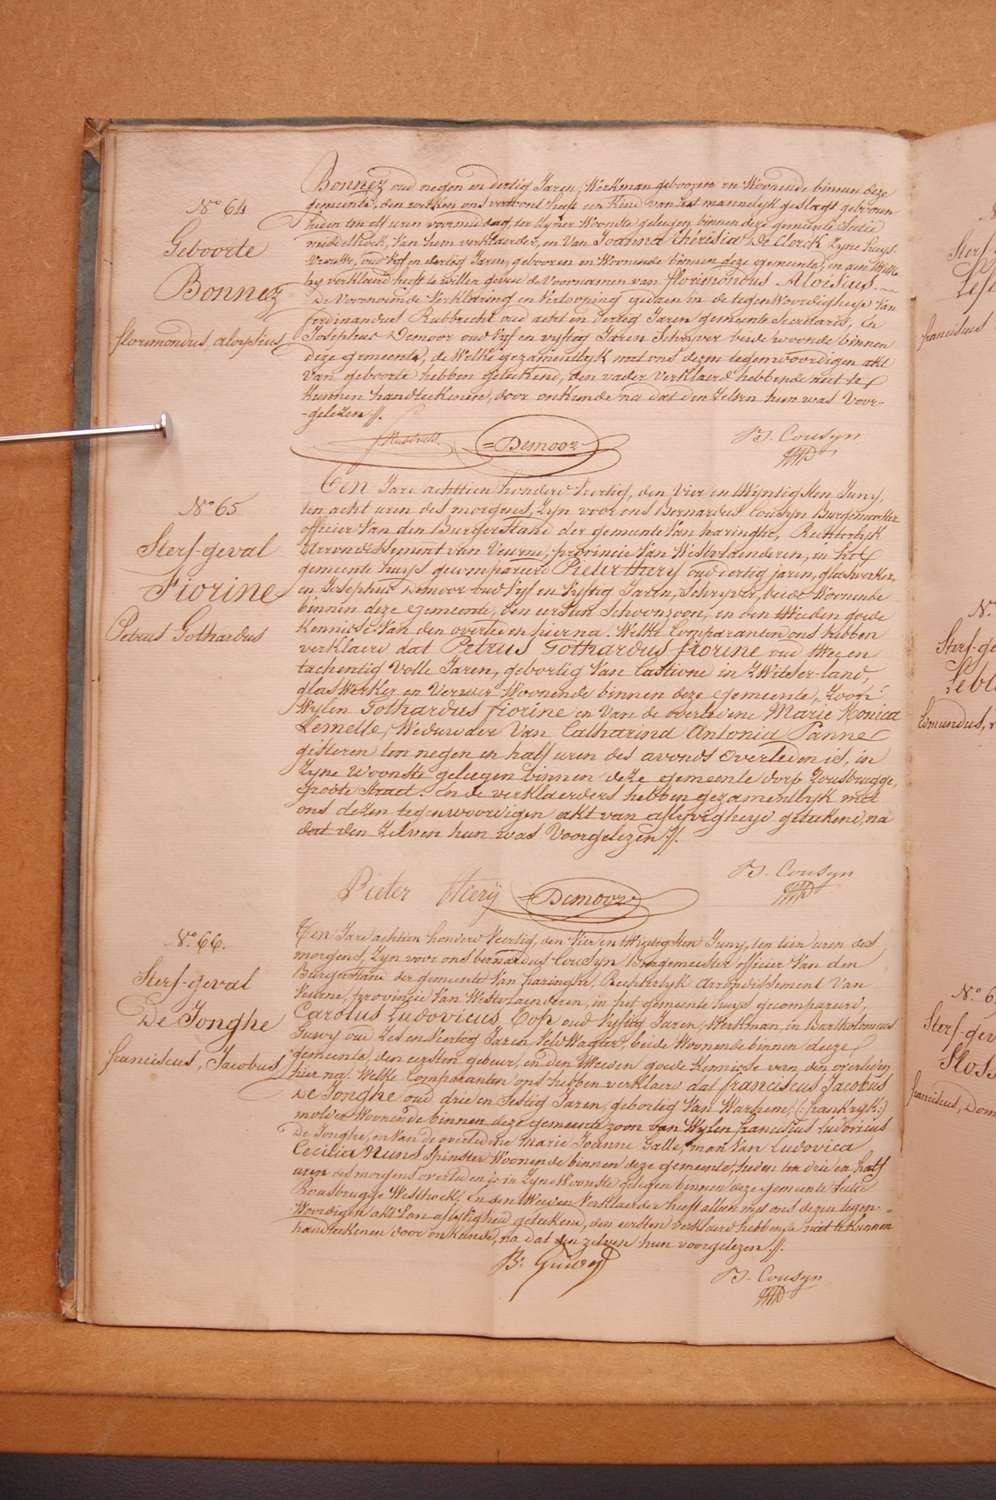 N° 64
Geboorte
Bonnez
florimondus aloysius
Bonnez oud negen en dertig Jaren, Werkman geboozen en Woonende binnen deze
gemeente, den welken ons vertoont heeft een Kind van het mannelyk geslagt geboorn
heden ten elf uren voormiddag, ten zyner Woonste gelegen binnen deze gemeente Sectie
van hem verklaerder, en Van Joanna Theresia De Clerck zyne huys
Vrouwe, oud vyf en dertig Jaren, geboren en Woonende binnen deze gemeente, en aen Welke
hy verklaerd heeft te willen geven de Voornamen van florimondus Aloisius.
De Voornoemde Verklaring en Vertooning gedaen in de tegenWoordigheyd Van
ferdinandus Rubbrecht oud acht en dertig Jaren gemeente Secretaris, En
Josephus Demoor oud vyf en vyftig Jaren Schryver beide woonde binnen
deze gemeente, de Welke gezamentlyk met ons dezen tegenwoordigen akt
van geboorte hebben geteekend, den vader Verklaerd hebbende niet te
kunnen handteekenen, door onkunde na dat den Zelven hun was Voor-
-gelezen //.
Demoor
B. Cousyn
N° 65
Sterf-geval
Fiorine
Petrus Gothardus
Ten Jare achttien honderd Veertig, den Vier en twyntigsten Juny,
ten acht uren des morgens, Zyn voor ons Bernardus Cousyn Burgemeester
officier Van den Burgerstand der gemeente Van haringhe, Rechterlyk
Arrondissement van Veurne, provincie Van Westvlaenderen, in het
gemeente huys gecompareerd Pieter they oud veertig jaren, glaswerker
en Josephus Demoor oud Vyf en Vyftig Jaren, Schryver, beide Woonende
binnen deze gemeente, den eersten Schoonzoon, en den tweeden goede
Kennisse Van den overledene hierna. Welke Comparanten ons hebben
verklaerd dat Petrus Gothardus fiorine oud twee en
tachentig Volle Jaren, geboortig Van Castione in Zwitser-land,
glas Werker en Verwer Woonende binnen deze gemeente, Zoon
Wylen Gothardus fiorine en Van de overledene Marie Monica
Lemelle, Weduwder Van Catharina Antonia Panne
gisteren ten negen en half uren des avonds overleden is, in
Zyne Woonste gelegen binnen deze gemeente dorp Rousbrugge,
groote Straet. En de verklaerders hebben gezamentlyk met
ons dezen tegenwoordigen akt van aflyvigheyd geteekend, na
dat den Zelven hun was Voorgelezen //.
Pieter they
Demoor
B. Cousyn
N° 66.
Sterf-geval
De Jonghe
franciscus, Jacobus
Ten Jare achtien honderd Veertig, den Vier en twyntigsten Juny, ten tien uren des
morgens, Zyn voor ons bernardus Cousyn burgemeester officier Van den
Burgerstand der gemeente Van haringhe, Rechterlyk Arrondissement Van
Veurne, provincie Van Westvlaenderen, in het gemeente huys gecompareerd,
Carolus Ludovicus Top oud Vyftig Jaren, Werkman, en Bartholomeus
oud Zes en Veertig Jaren Veld Wagter, beide Woonende binnen deeze
gemeente, den eersten gebuer, en den tweeden goede Kennisse van den overleden
hier na. Welke Comparanten ons hebben verklaerd dat franciscus Jacobus
De Jonghe oud drie en Sestig Jaren, geboortig Van Warhem, (frankryk.)
Woonende binnen deze gemeente zoon van Wylen franciscus Ludovicus
de Jonghe, en Van de overledene Marie Joanne Galle, man Van Ludovica
Cecilia Nuns Spinster Woonende binnen deze gemeente, heden ten drie en half
uren des morgens overleden is in Zyne Woonste gelegen binnen deze gemeente Sectie
Rousbrugge Westhoek, En den tweeden Verklaerder heeft alleen met ons dezen tegen-
Woordigen akt Van aflyvigheid geteekend, den eersten verklaerd hebbende niet te kunnen
handtekenen door onkunde, na dat den zelven hun voorgelezen //.
B. Cousyn